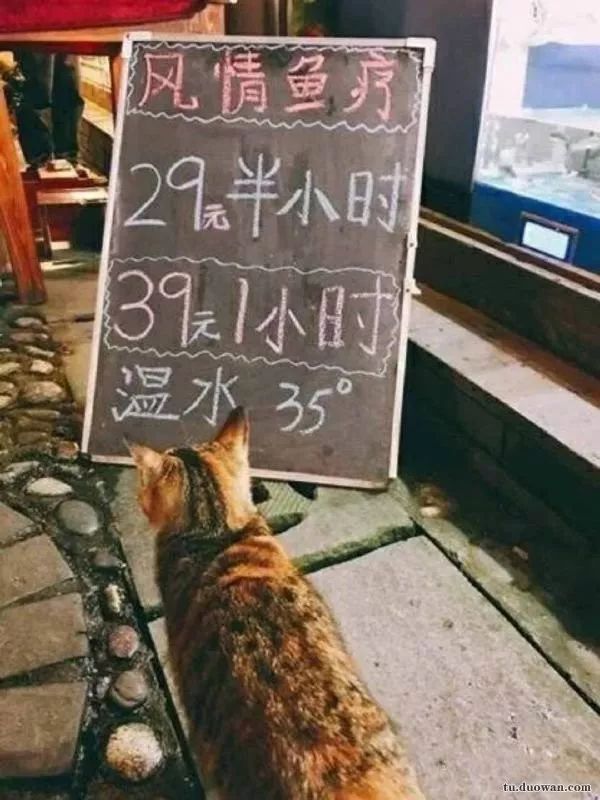 风情鱼疗
29元半小时
39元1小时
温水 35°
tu.duowan.com